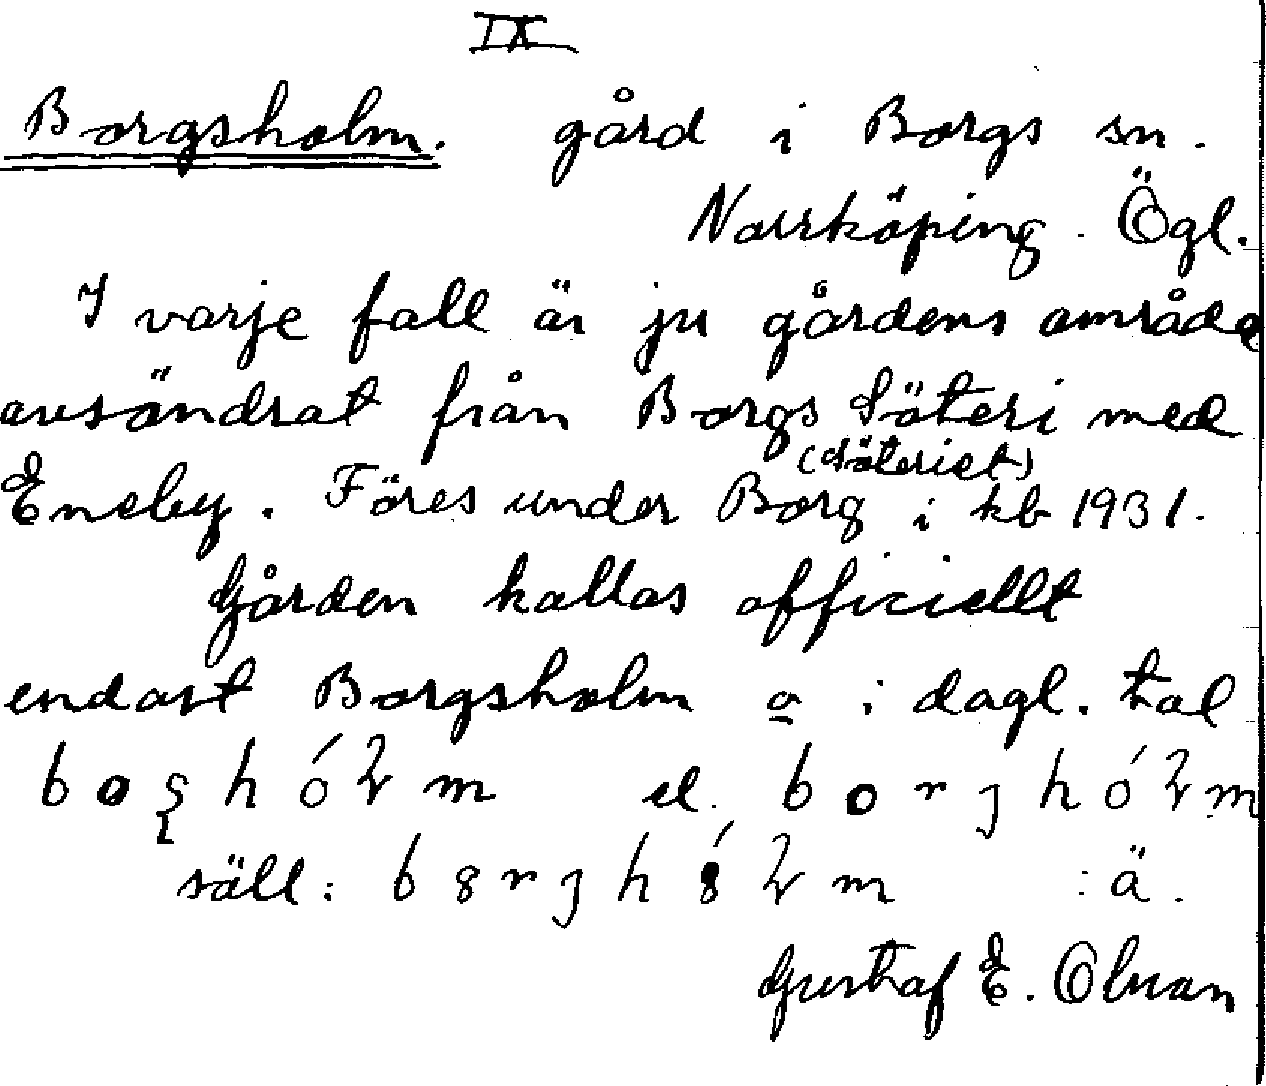 IX
Borgsholm. gård i Borgs sn.
Norrköping. Ögl.
I varje fall är ju gårdens område
avsöndrat från Borgs Säteri med
(Säteriet)
Eneby. Föres under Borg i kb 1931.
Gården kallas officiellt
endast Borgsholm o i dagl. tal
el.
säll: : ä.
Gustaf E. Olsson